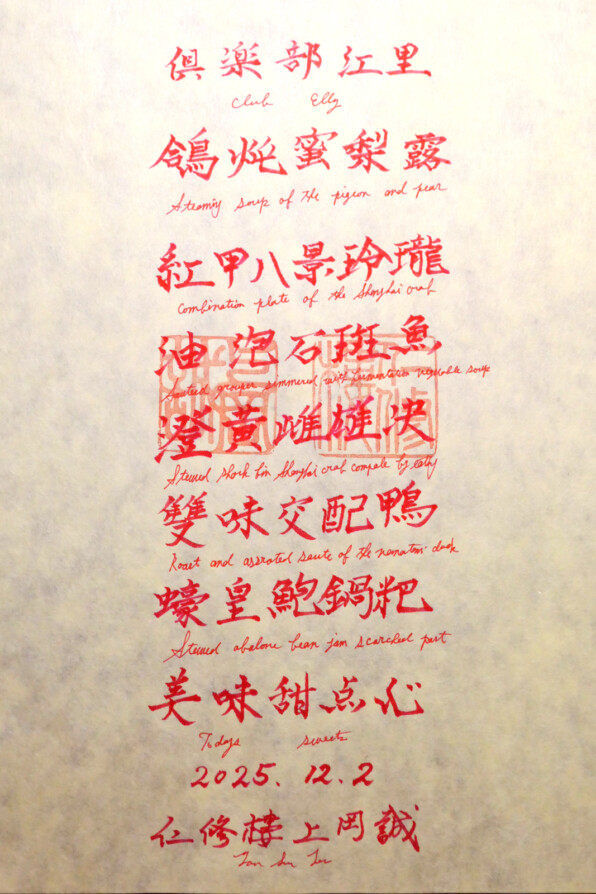 倶楽部 江里
Club Elly
鴿炖蜜梨露
Steaming soup of the pigeon and pear
紅甲八景玲瓏
Combination plate of the Shanghai crab
油泡石斑魚
Sauteed grouper simmered with fermentation vegetable soup
澄黄雌雄決
Stewed shark fin Shanghai crab compete by
雙味交配鴨
Roast and assorted saute of the duck
蠔皇鮑鍋粑
Stewed abalone bean jam scorched part
美味甜点心
Todays sweets
2025. 12. 2
仁修樓 上岡誠